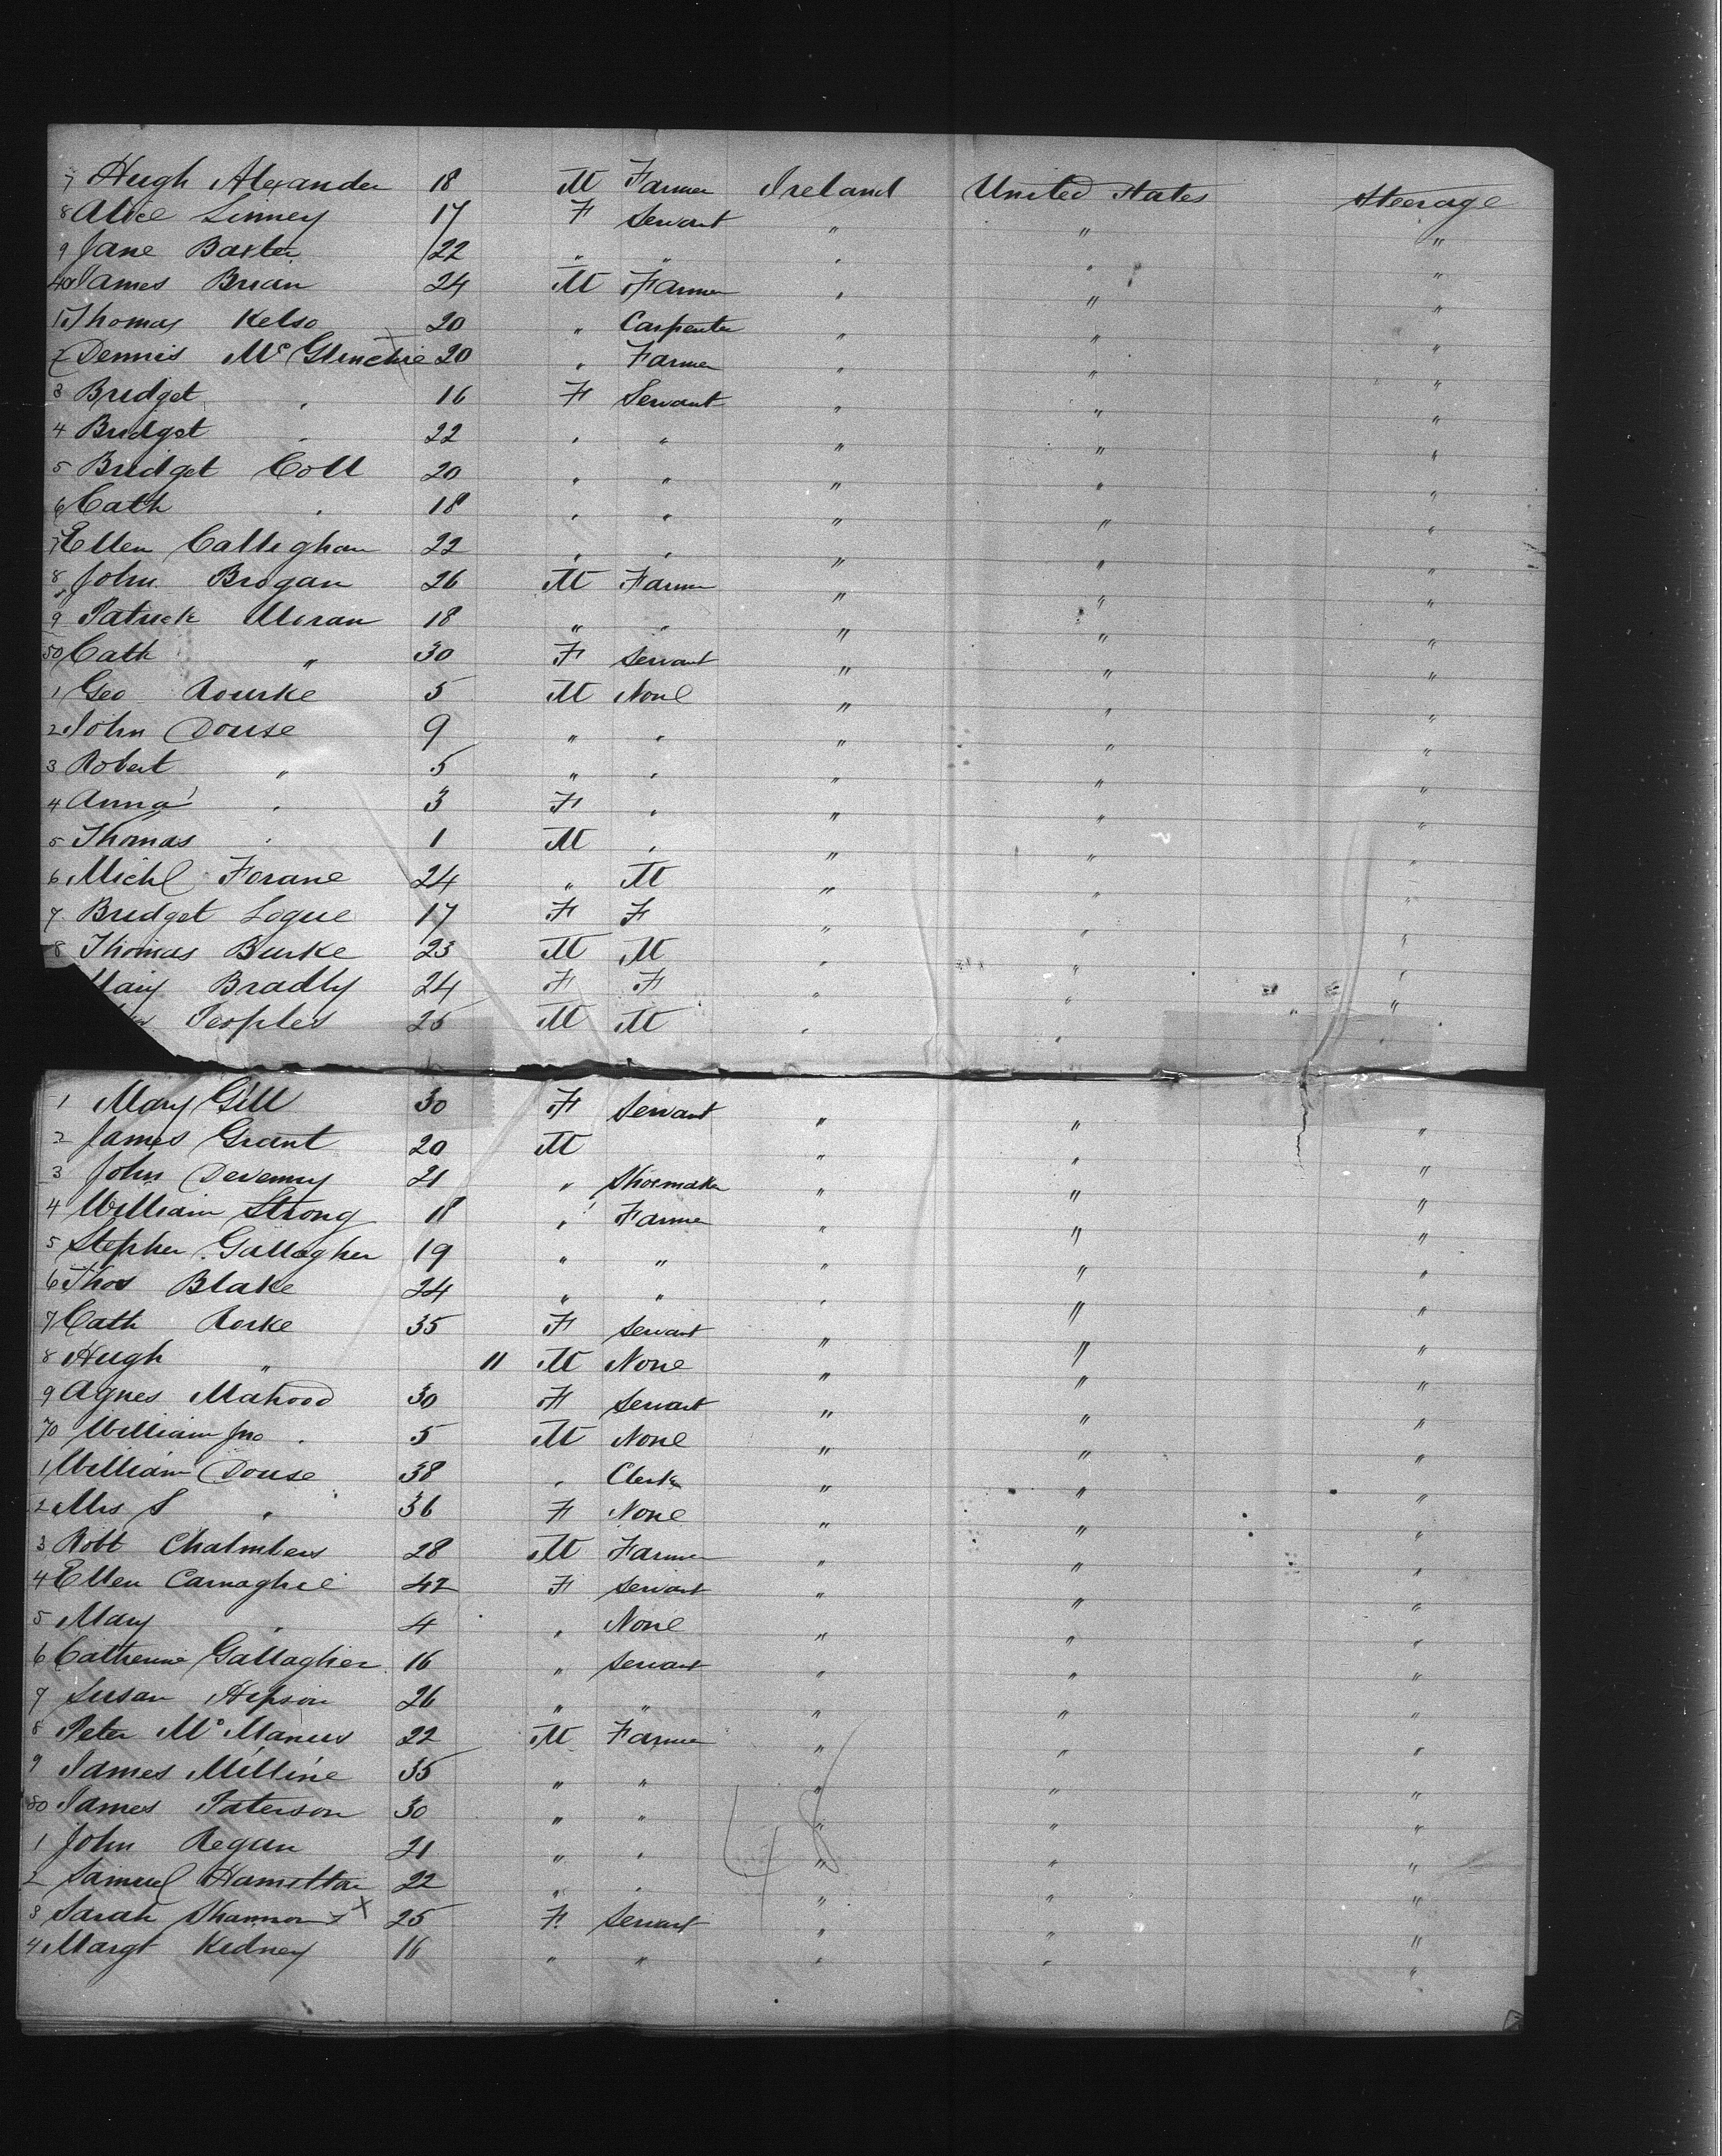 7 Hugh Alexander 18 M Farmer Ireland United States Steerage
8 Alice Linney 17 F Servant " " "
9 Jane Baxter 22 " " " " "
40 James Brian 24 M Farmer " " "
1 Thomas Kelso 20 " Carpenter " " "
2 Dennis Mc Glinchie 20 " Farmer " " "
3 Bridget " 16 F Servant " " "
4 Bridget " 22 " " " " "
5 Bridget Coll 20 " " " " "
6 Cath " 18 " " " " "
7 Ellen Callighan 22 " " " " "
8 John Brogan 26 M Farmer " " "
9 Patrick Moran 18 " " " " "
50 Cath " 30 F Servant " " "
1 Geo Rourke 5 M None " " "
2 John Douse 9 " " " " "
3 Robert " 5 " " " " "
4 Anna " 3 F " " " "
5 Thomas " 1 M " " " "
6 Michl Forane 24 " M " " "
7 Bridget Logue 17 F F " " "
8 Thomas Burke 23 M M " " "
Mary Bradly 24 F F " " "
Peoples 25 M M " " "
1 Mary Gill 30 F Servant " " "
2 James Grant 20 M " " "
3 John Devenny 21 " Shoemaker " " "
4 William Strong 18 " Farmer " " "
5 Stephen Gallagher 19 " " " " "
6 Thos Blake 24 " " " " "
7 Cath Rorke 35 F Servant " " "
8 Hugh " 11 M None " " "
9 Agnes Mahood 30 F Servant " " "
70 William Jno " 5 M None " " "
1 William Douse 38 " Clerk " " "
2 Mrs S " 36 F None " " "
3 Robt Chalmbers 28 M Farmer " " "
4 Ellen Carnaghie 42 F Servant " " "
5 Mary " 4 " None " " "
6 Catherine Gallagher 16 " Servant " " "
7 Susan Hipson 26 " " " " "
8 Peter Mc Manus 22 M Farmer " " "
9 James Milline 35 " " " " "
80 James Paterson 30 " " " " "
1 John Regan 21 " " " " "
2 Samuel Hamilton 22 " " " " "
3 Sarah Shannon x 25 F Servant " " "
4 Margt Kidney 16 " " " " "
48